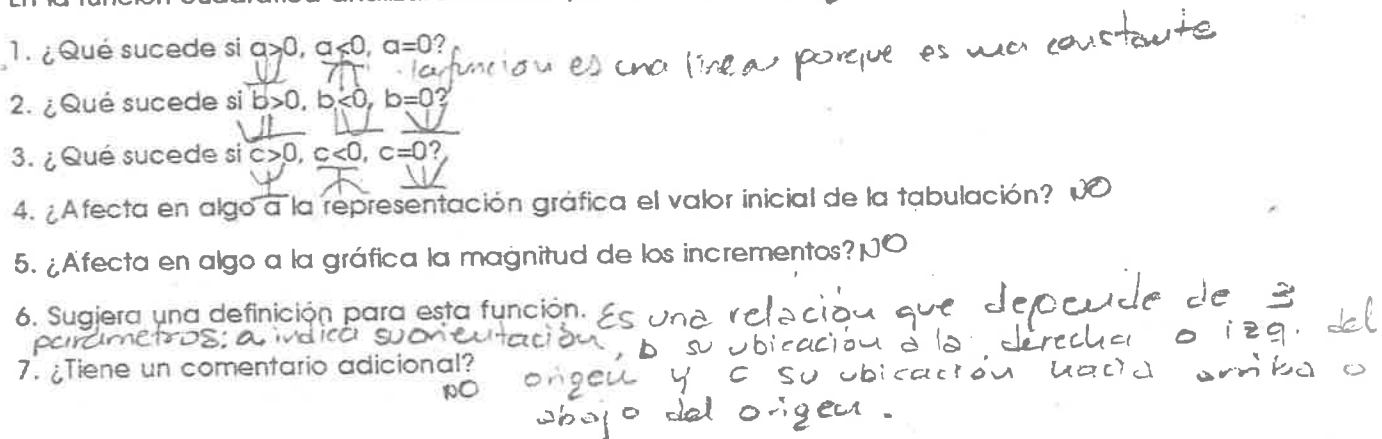 1. ¿Qué sucede si a>0, a<0, a=0? la función es una linea porque es una constante
2. ¿Qué sucede si b>0, b<0, b=0?
3. ¿Qué sucede si c>0, c<0, c=0?
4. ¿Afecta en algo a la representación gráfica el valor inicial de la tabulación? NO
5. ¿Afecta en algo a la gráfica la magnitud de los incrementos? NO
6. Sugiera una definición para esta función. Es una relación que depende de 3
parámetros: a indica su orientación, b su ubicación a la derecha o izq. del
7. ¿Tiene un comentario adicional? origen y c su ubicación hacia arriba o
NO abajo del origen.